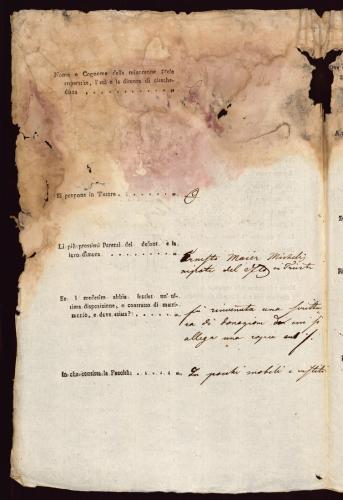 Nome e Cognome della minorenne prole
superstite, l'età e la dimora di ciasche-
duna
Si propone in Tutore
O
Li più prossimi Parenti del defunto e la
loro dimora
Ernesta Maier
del in Trieste
Se i medesimi abbia lasciat un' ul-
tima disposizione, o contratto di matri-
monio, e dove esista?
fu rinvenuta una
ra di donazione di cui si
allega una copia sub
In che consista la Facoltà
In pochi mobili e vestiti